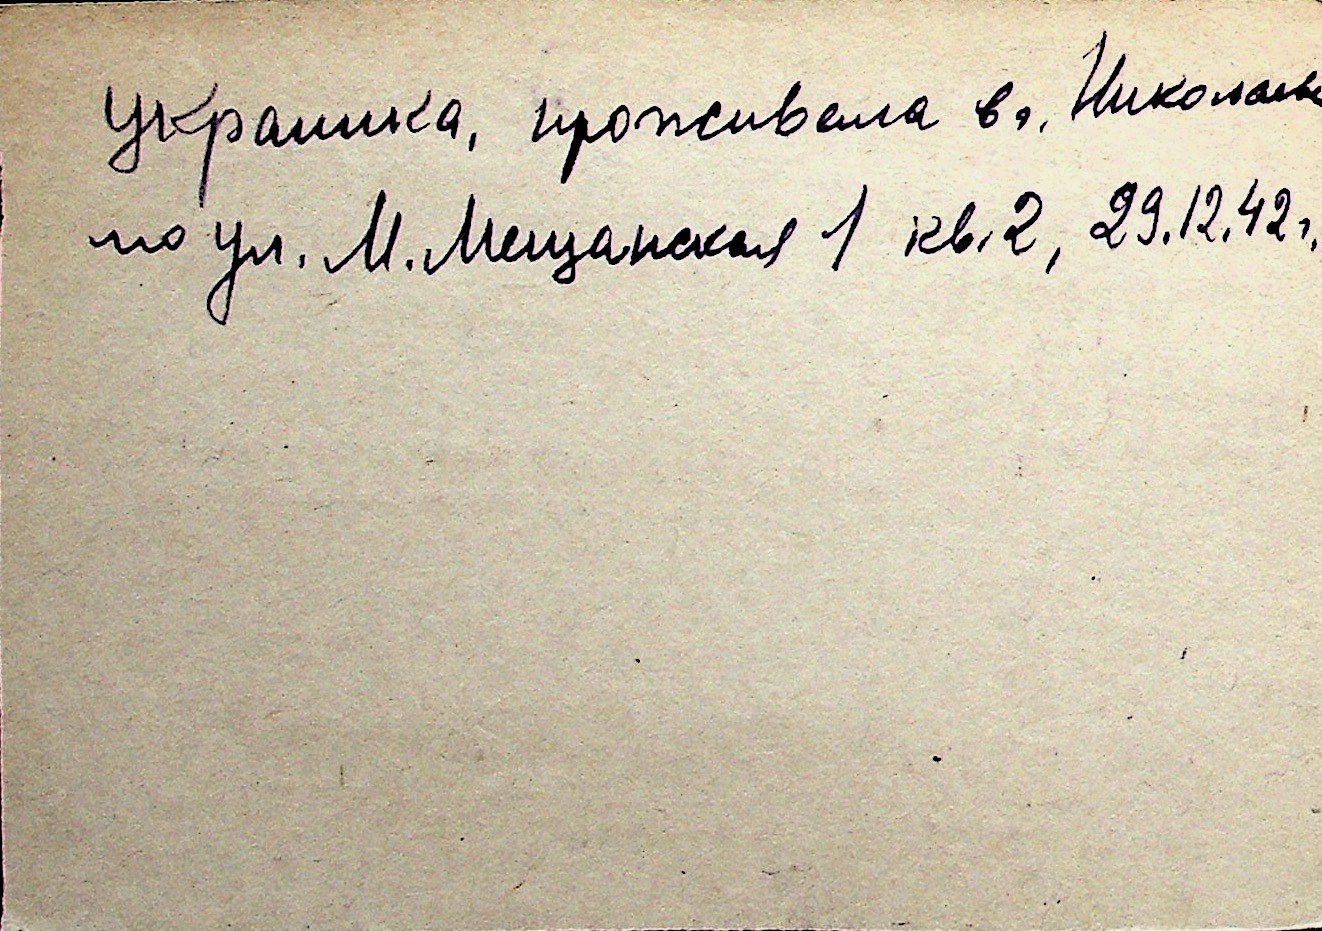 Украинка, проживала в г. Николаеве
по ул. М. Мещанская 1 кв. 2, 29.12.42 г.